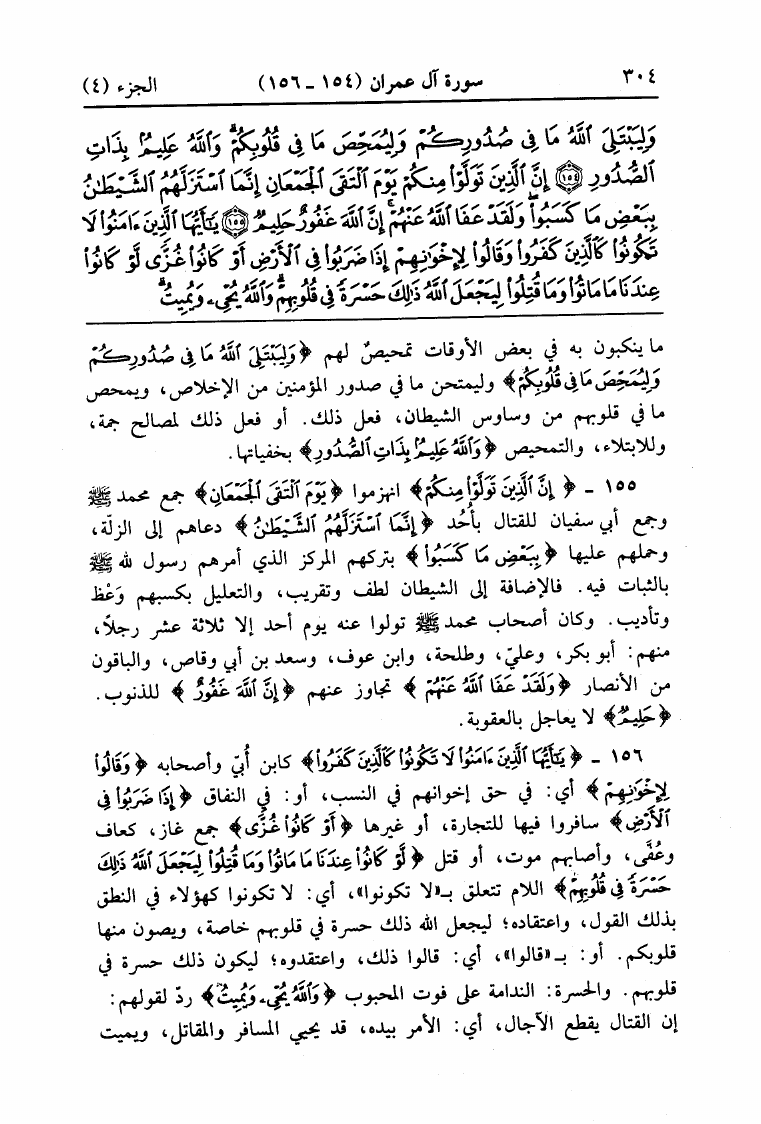 ٣٠٤ سورة آل عمران (١٥٤ - ١٥٦) الجزء (٤)
وَلِيَبْتَلِيَ ٱللَّهُ مَا فِي صُدُورِكُمْ وَلِيُمَحِّصَ مَا فِي قُلُوبِكُمْ ۗ وَٱللَّهُ عَلِيمٌۢ بِذَاتِ
ٱلصُّدُورِ ﴿١٥٤﴾ إِنَّ ٱلَّذِينَ تَوَلَّوْا۟ مِنكُمْ يَوْمَ ٱلْتَقَى ٱلْجَمْعَانِ إِنَّمَا ٱسْتَزَلَّهُمُ ٱلشَّيْطَٰنُ
بِبَعْضِ مَا كَسَبُوا۟ ۖ وَلَقَدْ عَفَا ٱللَّهُ عَنْهُمْ ۗ إِنَّ ٱللَّهَ غَفُورٌ حَلِيمٌ ﴿١٥٥﴾ يَٰٓأَيُّهَا ٱلَّذِينَ ءَامَنُوا۟ لَا
تَكُونُوا۟ كَٱلَّذِينَ كَفَرُوا۟ وَقَالُوا۟ لِإِخْوَٰنِهِمْ إِذَا ضَرَبُوا۟ فِي ٱلْأَرْضِ أَوْ كَانُوا۟ غُزًّى لَّوْ كَانُوا۟
عِندَنَا مَا مَاتُوا۟ وَمَا قُتِلُوا۟ لِيَجْعَلَ ٱللَّهُ ذَٰلِكَ حَسْرَةً فِي قُلُوبِهِمْ ۗ وَٱللَّهُ يُحْيِۦ وَيُمِيتُ ۗ
ما ينكبون به في بعض الأوقات تمحيصٌ لهم ﴿وَلِيَبْتَلِيَ ٱللَّهُ مَا فِي صُدُورِكُمْ
وَلِيُمَحِّصَ مَا فِي قُلُوبِكُمْ﴾ وليمتحن ما في صدور المؤمنين من الإخلاص، ويمحص
ما في قلوبهم من وساوس الشيطان، فعل ذلك. أو فعل ذلك لمصالح جمة،
وللابتلاء، والتمحيص ﴿وَٱللَّهُ عَلِيمٌۢ بِذَاتِ ٱلصُّدُورِ﴾ بخفياتها.
١٥٥ - ﴿إِنَّ ٱلَّذِينَ تَوَلَّوْا۟ مِنكُمْ﴾ انهزموا ﴿يَوْمَ ٱلْتَقَى ٱلْجَمْعَانِ﴾ جمع محمد ﷺ
وجمع أبي سفيان للقتال بأُحُد ﴿إِنَّمَا ٱسْتَزَلَّهُمُ ٱلشَّيْطَٰنُ﴾ دعاهم إلى الزلّة،
وحملهم عليها ﴿بِبَعْضِ مَا كَسَبُوا۟﴾ بتركهم المركز الذي أمرهم رسول لله ﷺ
بالثبات فيه. فالإضافة إلى الشيطان لطف وتقريب، والتعليل بكسبهم وَعْظ
وتأديب. وكان أصحاب محمد ﷺ تولوا عنه يوم أحد إلا ثلاثة عشر رجلاً،
منهم: أبو بكر، وعليّ، وطلحة، وابن عوف، وسعد بن أبي وقاص، والباقون
من الأنصار ﴿وَلَقَدْ عَفَا ٱللَّهُ عَنْهُمْ﴾ تجاوز عنهم ﴿إِنَّ ٱللَّهَ غَفُورٌ﴾ للذنوب.
﴿حَلِيمٌ﴾ لا يعاجل بالعقوبة.
١٥٦ - ﴿يَٰٓأَيُّهَا ٱلَّذِينَ ءَامَنُوا۟ لَا تَكُونُوا۟ كَٱلَّذِينَ كَفَرُوا۟﴾ كابن أُبيّ وأصحابه ﴿وَقَالُوا۟
لِإِخْوَٰنِهِمْ﴾ أي: في حق إخوانهم في النسب، أو: في النفاق ﴿إِذَا ضَرَبُوا۟ فِي
ٱلْأَرْضِ﴾ سافروا فيها للتجارة، أو غيرها ﴿أَوْ كَانُوا۟ غُزًّى﴾ جمع غاز، كعاف
وعُفَّى، وأصابهم موت، أو قتل ﴿لَّوْ كَانُوا۟ عِندَنَا مَا مَاتُوا۟ وَمَا قُتِلُوا۟ لِيَجْعَلَ ٱللَّهُ ذَٰلِكَ
حَسْرَةً فِي قُلُوبِهِمْ﴾ اللام تتعلق بـ«لا تكونوا»، أي: لا تكونوا كهؤلاء في النطق
بذلك القول، واعتقاده؛ ليجعل الله ذلك حسرة في قلوبهم خاصة، ويصون منها
قلوبكم. أو: بـ«قالوا»، أي: قالوا ذلك، واعتقدوه؛ ليكون ذلك حسرة في
قلوبهم. والحسرة: الندامة على فوت المحبوب ﴿وَٱللَّهُ يُحْيِۦ وَيُمِيتُ﴾ ردّ لقولهم:
إن القتال يقطع الآجال، أي: الأمر بيده، قد يحيي المسافر والمقاتل، ويميت